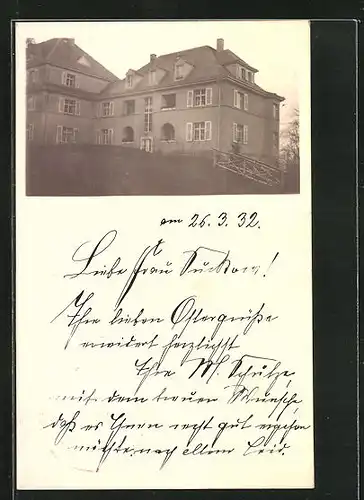 am 26.3.32.
Liebe Frau Suckow!
Ihre lieben Ostergrüße
erwidert herzlichst
Ihre M. Schulze,
mit dem treuen Wunsche,
daß es Ihnen recht gut ergehen
möchte nach allem Leid.